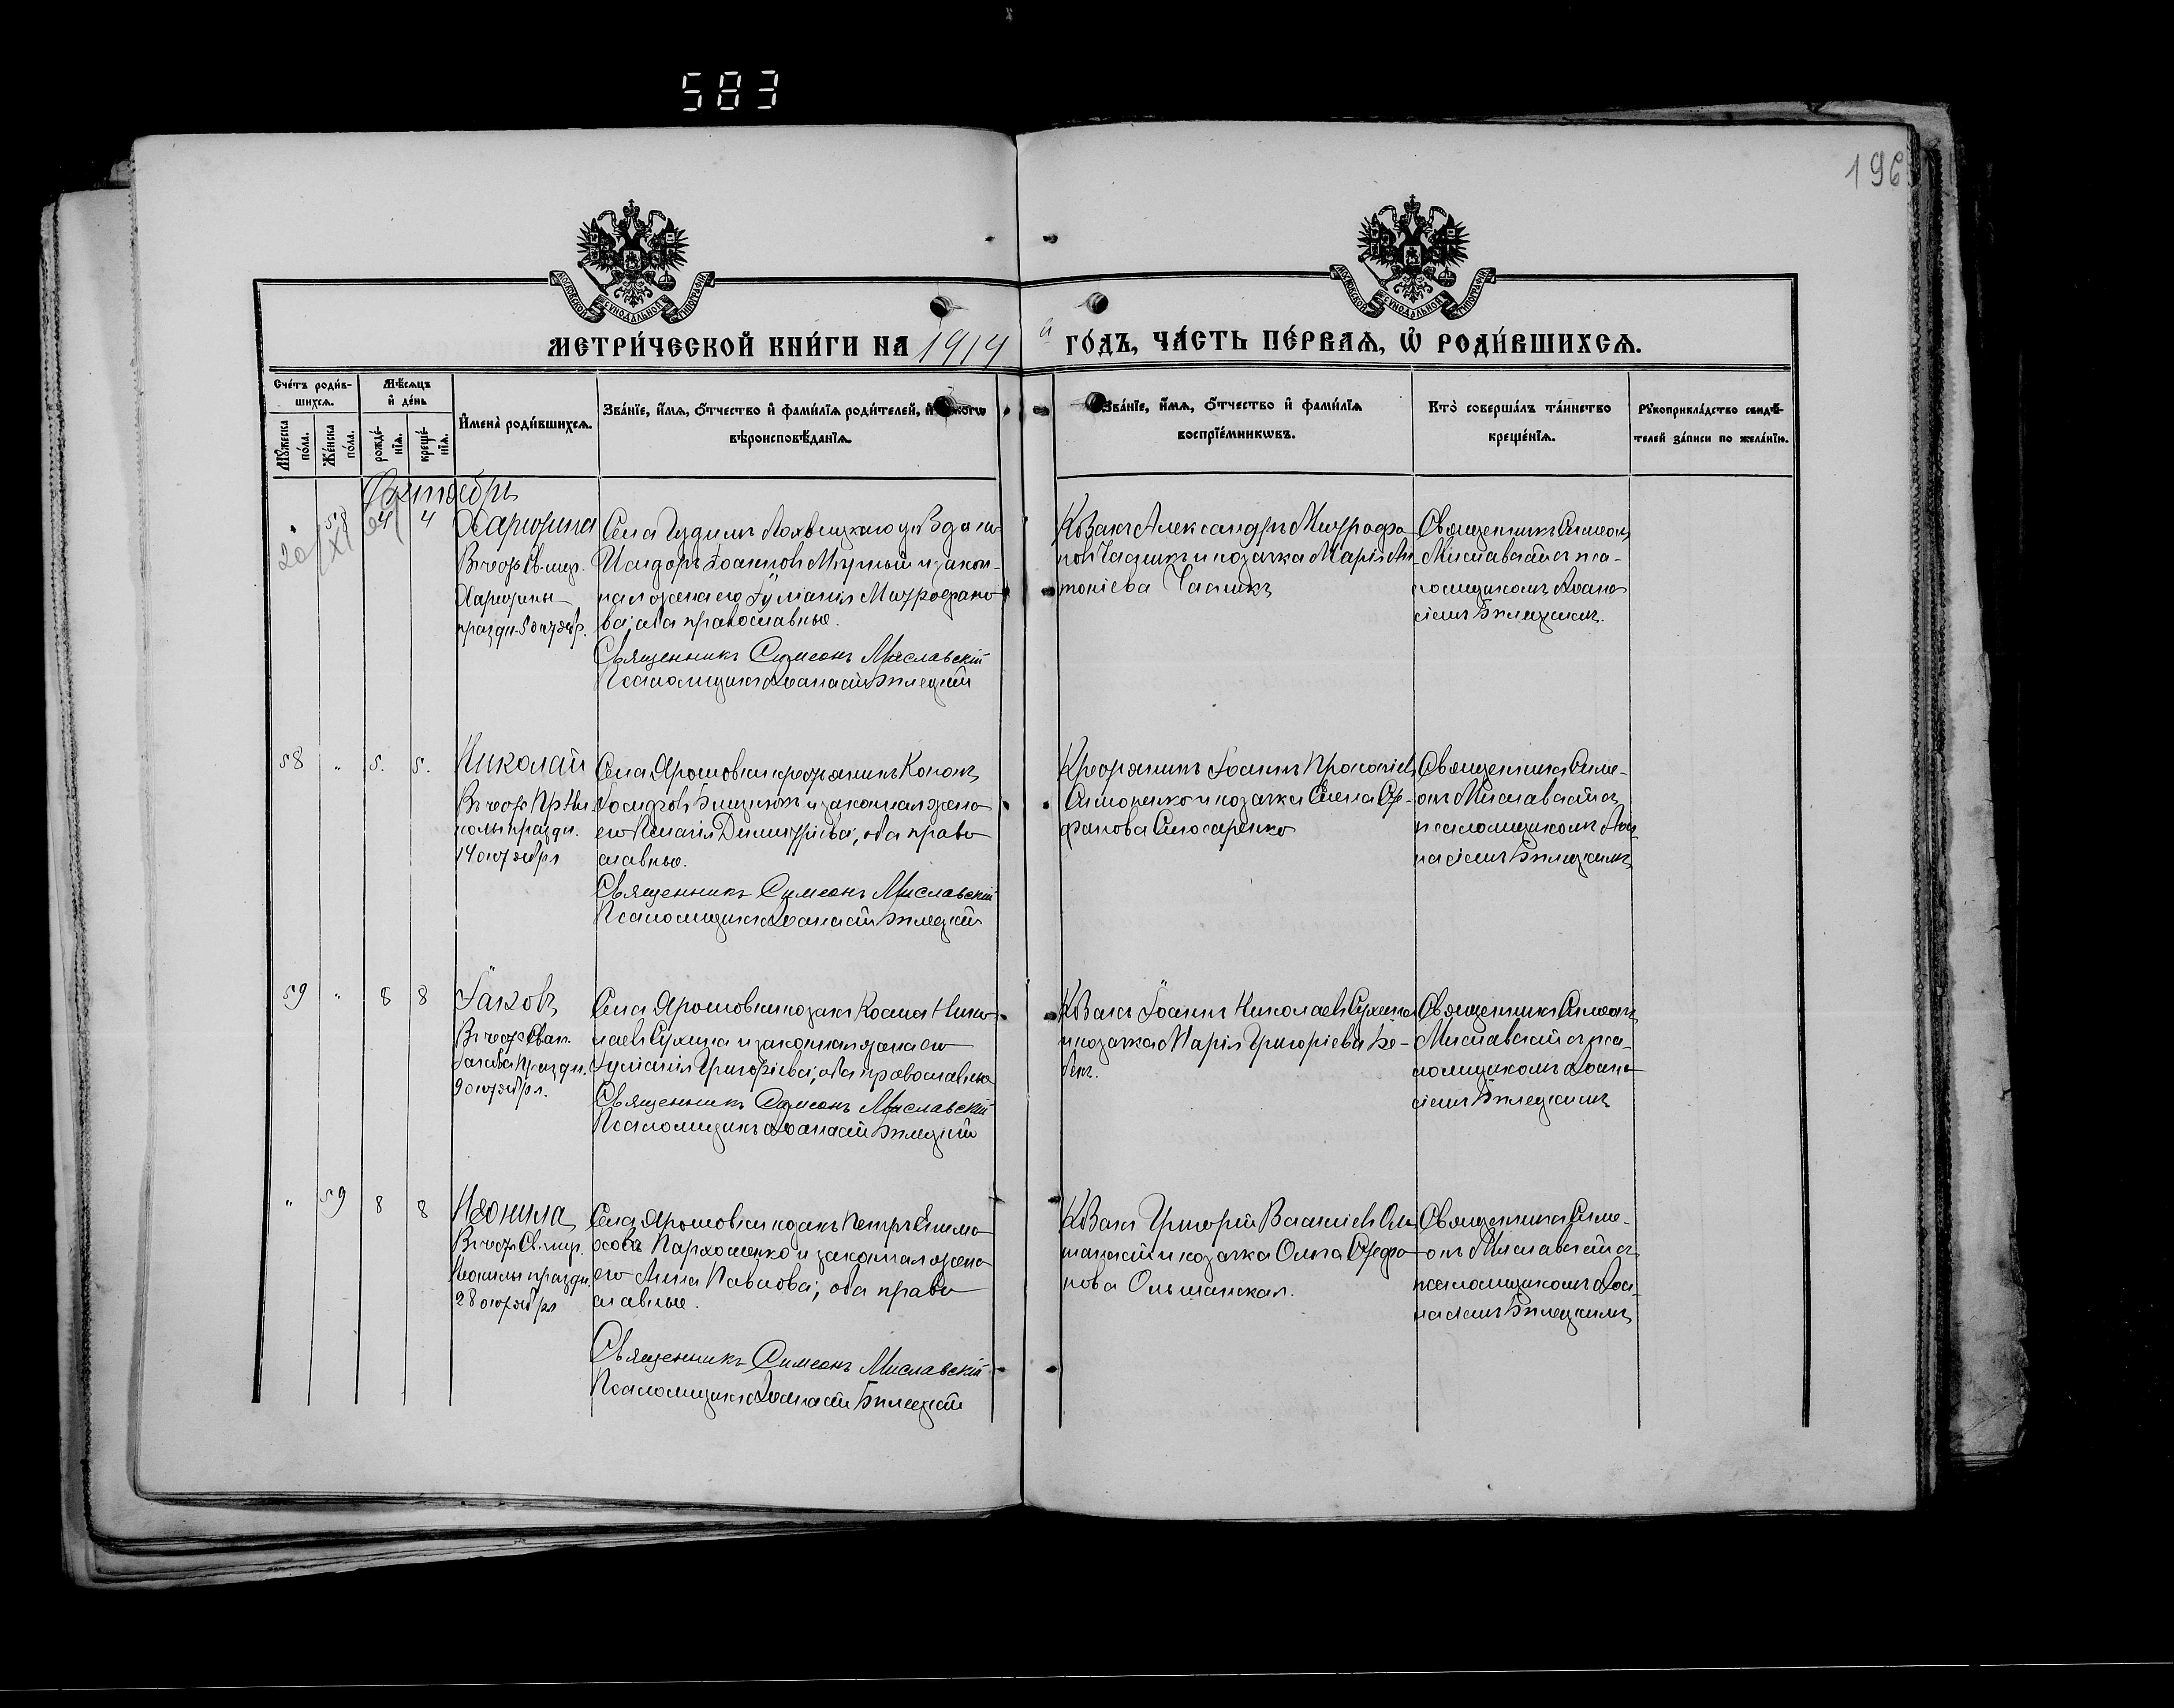 583
196
МОСКОВСКОЙ СУНОДАЛЬНОЙ ТИПОГРАФІИ
МОСКОВСКОЙ СУНОДАЛЬНОЙ ТИПОГРАФІИ
МЕТРИ́ЧЕСКОЙ КНИ́ГИ НА 1914 й ГО́ДЪ, ЧА́СТЬ ПЕ́РВАѦ, Ѡ҆ РОДИ́ВШИХСѦ.
Сче́тъ роди́в-
шихсѧ.
Мꙋ́жеска по́ла.
Же́нска по́ла.
Мѣ́сѧцъ
и҆ де́нь
рожде́-
нїѧ.
креще́-
нїѧ.
И҆мена̀ роди́вшихсѧ.
Зва́нїе, и҆́мѧ, ѻ҆́тчество и҆ фами́лїѧ роди́телей, и҆
вѣроисповѣ́данїѧ.
Зва́нїе, и҆́мѧ, ѻ҆́тчество и҆ фами́лїѧ
воспрїе́мникѡвъ.
Кто̀ соверша́лъ та́инство
креще́нїѧ.
Рꙋкоприкла́дство свидѣ́-
телей за́писи по жела́нїю.
Октябрь
" 58 4 4
Харитина
Въ честь Св. мцр.
Харитины
праздн. 5 октябр.
Исидоръ Іоанновъ и закон-
ная жена его Іуліанія Митрофано-
ва; оба православные.
Священникъ Симеонъ Миславскій
Псаломщикъ Аѳанасій Билецкій
Козакъ Александръ Митрофа-
новъ Часникъ и козачка Марія Ан-
тоніева Часникъ
Священникъ Симеонъ
Миславскій съ пса-
ломщикомъ Аѳана-
сіемъ Билецкимъ.
58 " 5. 5.
Николай
Въ честь Пр. Ни-
колы праздн.
14 октября
Села Ярошовки крестьянинъ Кононъ
и законная жена
его Пелагія Димитріева, оба право-
славные.
Священникъ Симеонъ Миславскій
Псаломщикъ Аѳанасій Билецкій
Крестьянинъ Іоаннъ Прокопіевъ
Симоненко и козачка Елена Сте-
фанова Слюсаренко
Священникъ Симе-
онъ Миславскій съ
псаломщикомъ Аѳа-
насіемъ Билецкимъ
59 " 8 8
Іаковъ
Въ честь Св. ап.
Іакова праздн.
9 октября.
Села Ярошовки козакъ Косма Нико-
лаевъ Сухина и законная жена его
Іуліанія Григоріева; оба православные
Священникъ Симеонъ Миславскій
Псаломщикъ Аѳанасій Билецкій
Козакъ Іоаннъ Николаевъ Сухина
и козачка Марія Григоріева
Священникъ Симеонъ
Миславскій съ пса-
ломщикомъ Аѳана-
сіемъ Билецкимъ
" 59 8 8
Неонила
Въ честь Св. мцр.
Неонилы праздн.
28 октября
Села Ярошовки козакъ Петръ
Пархоменко и законная жена
его Анна Павлова; оба право-
славные.
Священникъ Симеонъ Миславскій
Псаломщикъ Аѳанасій Билецкій
Козакъ Григорій Васильевъ Оль-
шанскій и козачка Ольга Стефа-
нова Ольшанская.
Священникъ Симе-
онъ Миславскій съ
псаломщикомъ Аѳа-
насіемъ Билецкимъ